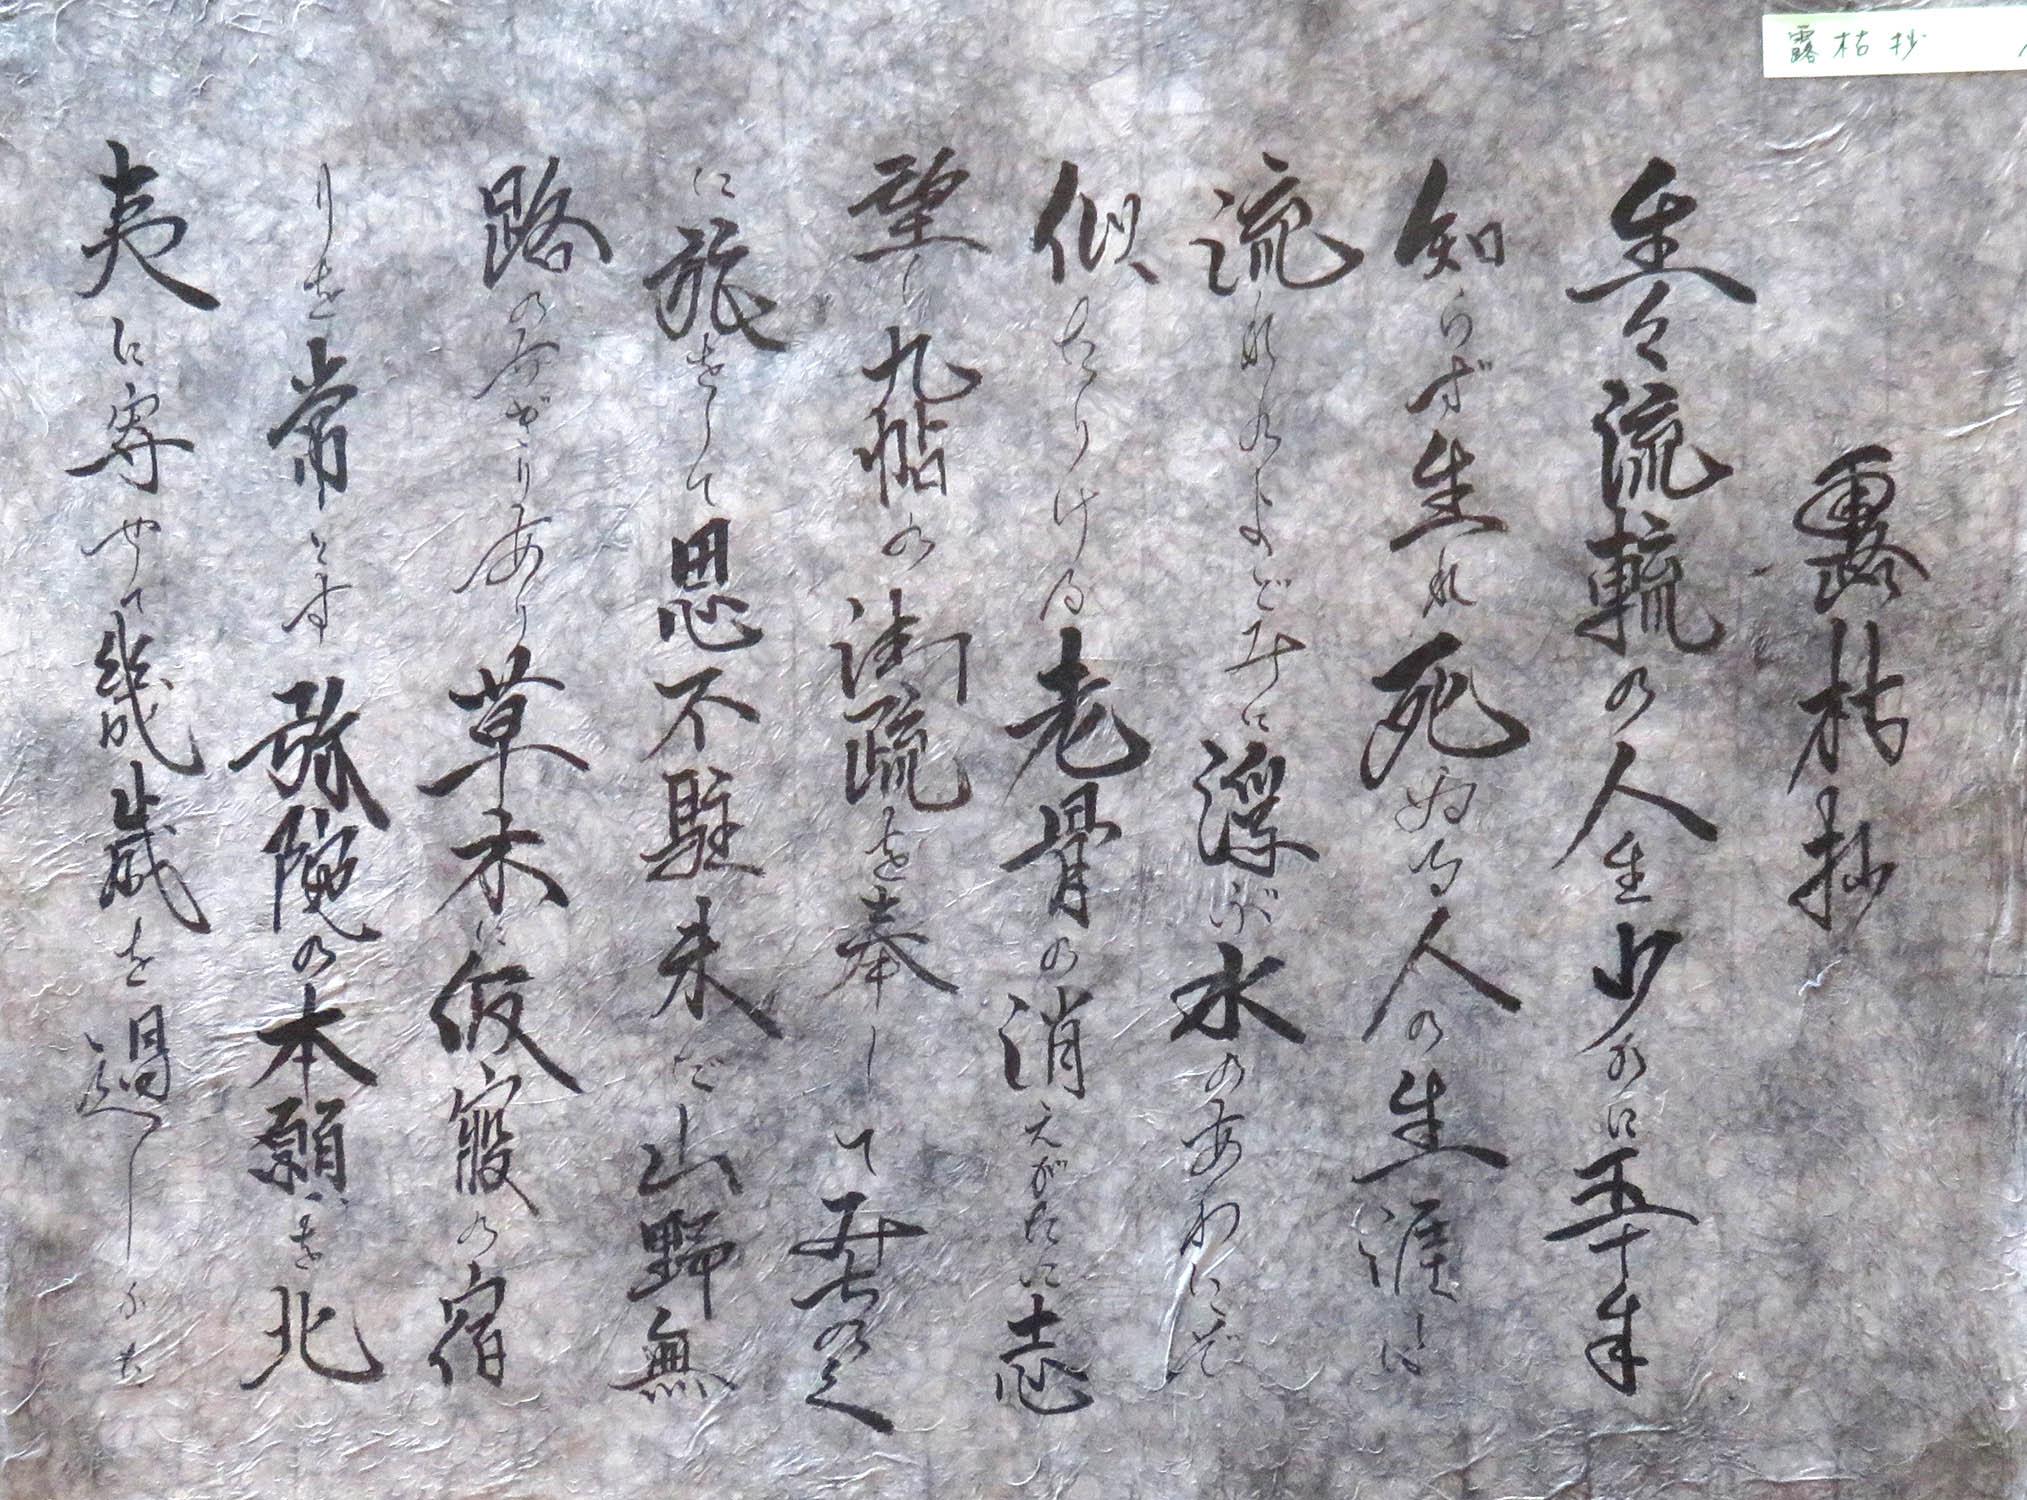 露枯抄
露枯抄
生々流転の人生少かに五十年
知らず生れ死ぬる人の生涯は
流れのよどみに浮ぶ水のあわにぞ
似たりける老骨の消えがたに志
望し九帖の御疏を奉じて
に旅をして思不駐未だ山野無
路の寄がりあり草木に仮寝の宿
りを常とす弥陀の本願を北
夷に寄せて幾歳を過し